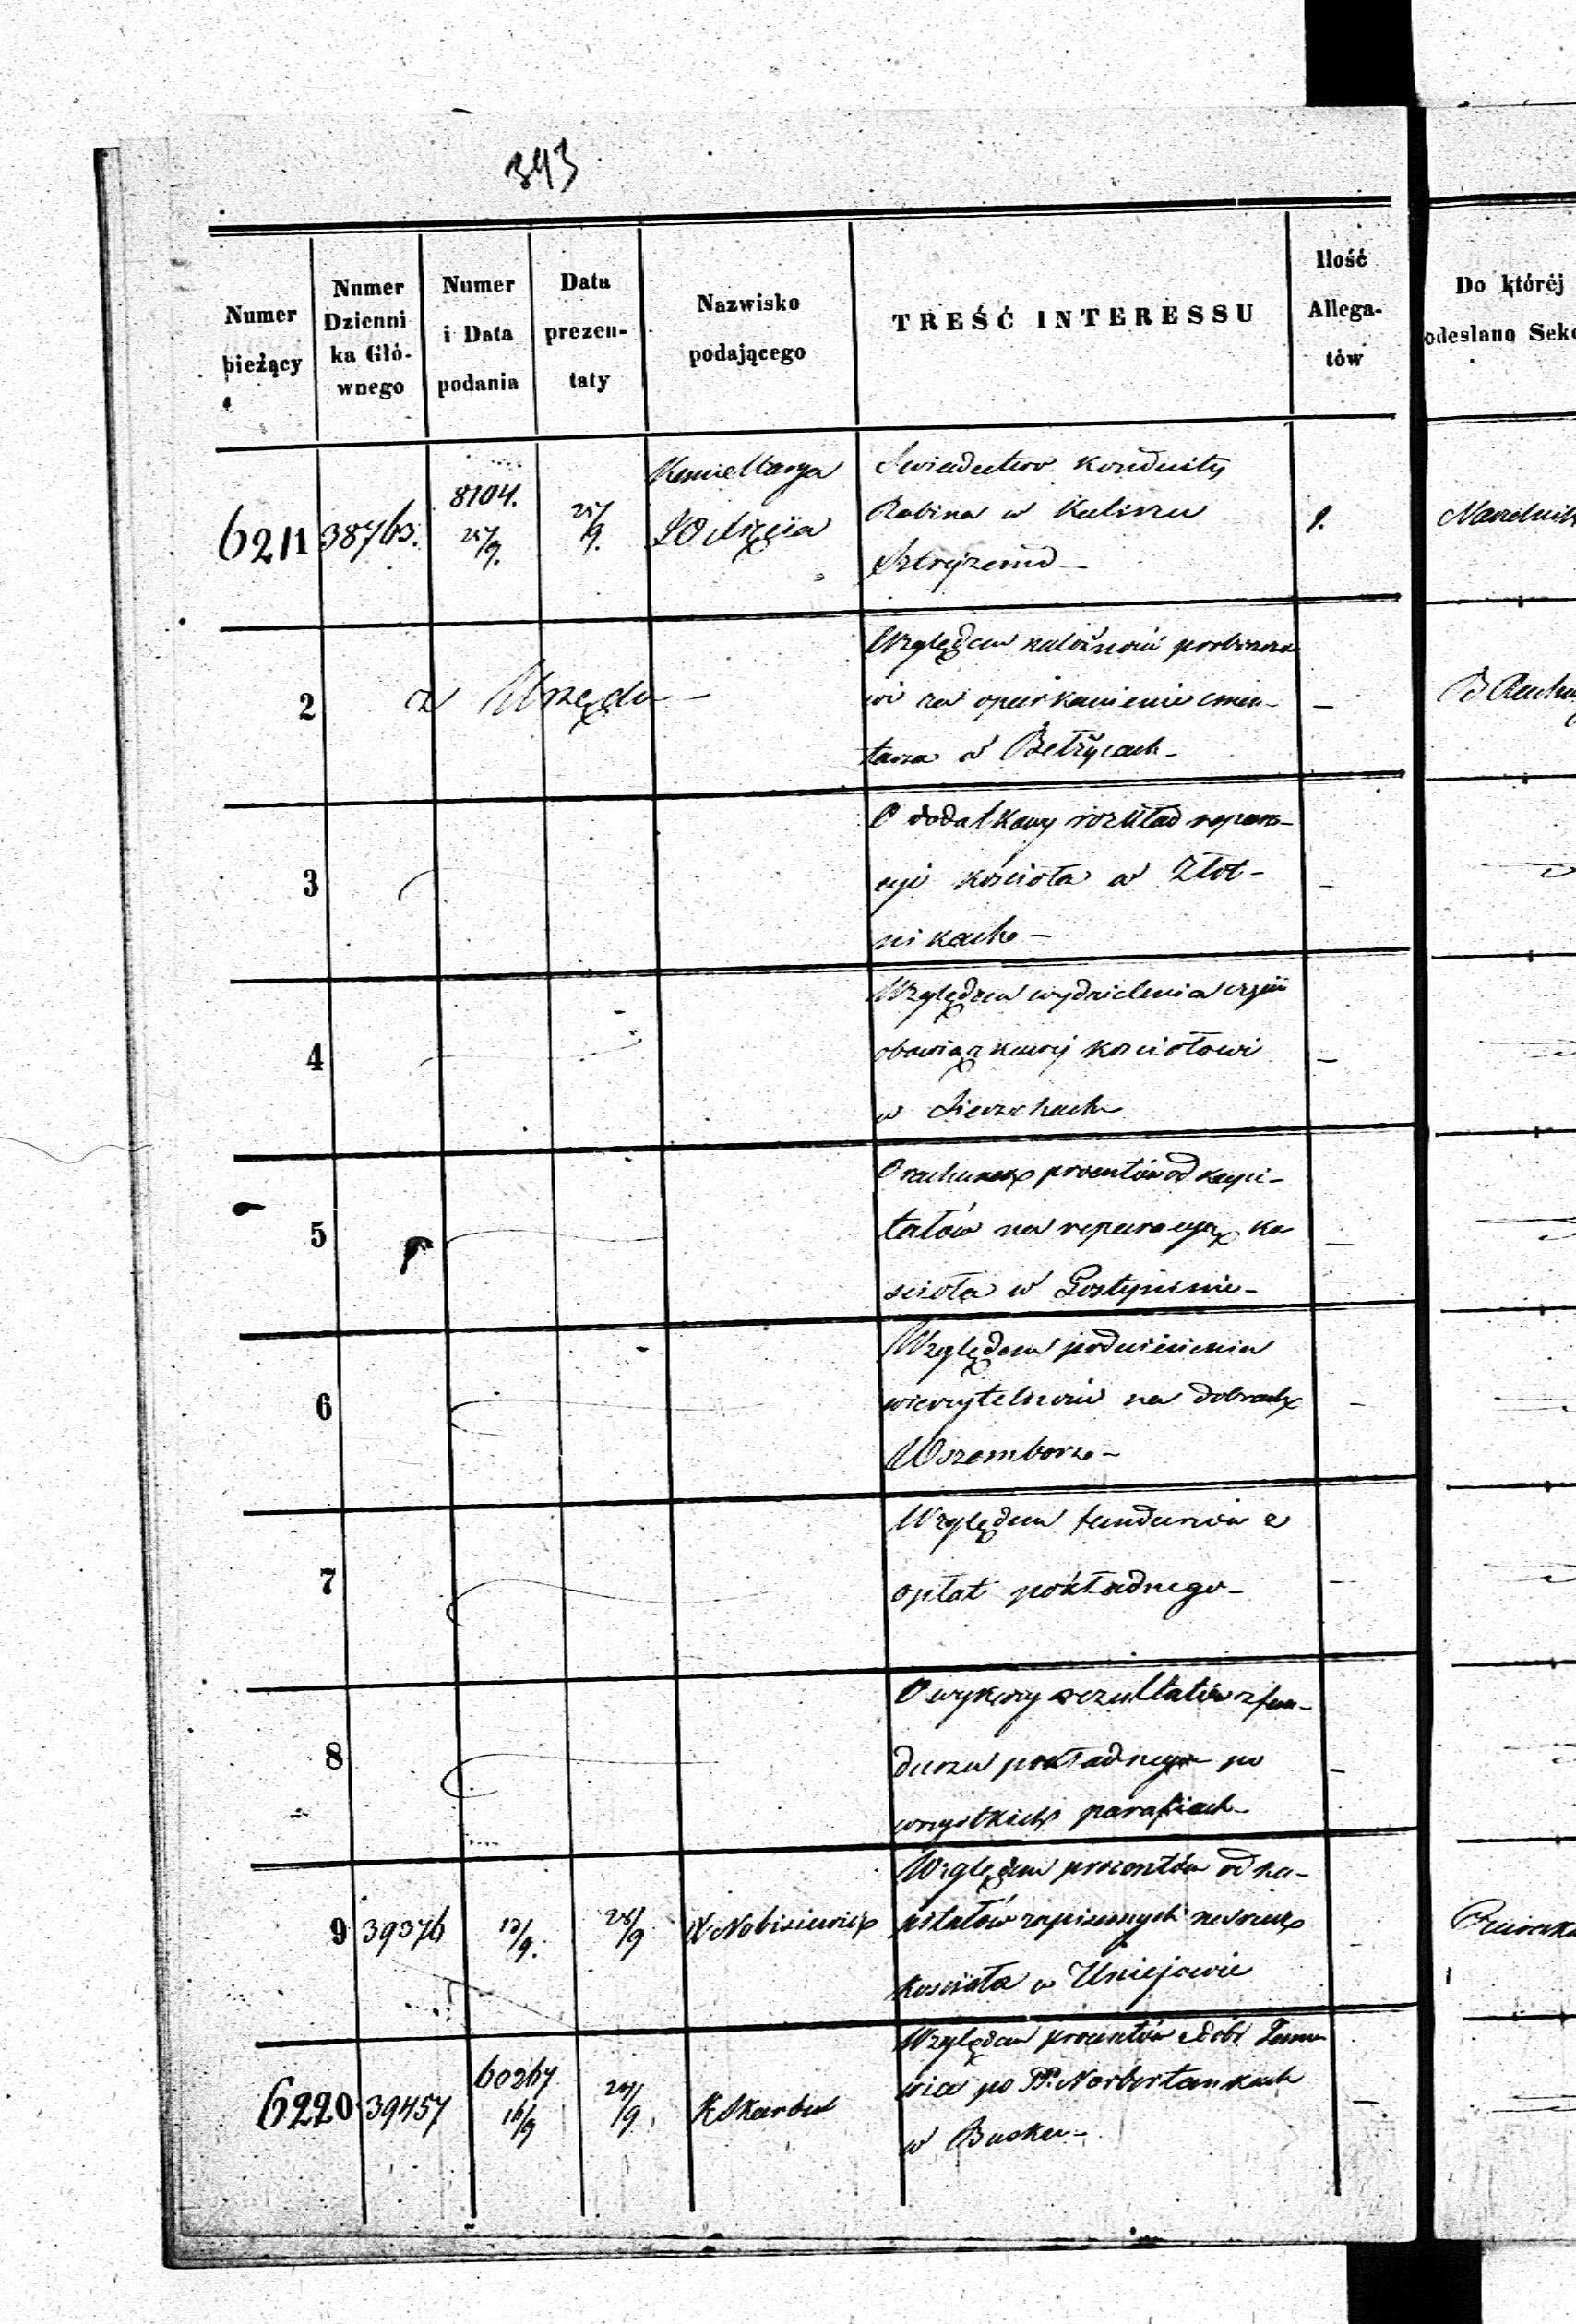 343
Numer bieżący
Numer Dzienni ka Głó- wnego
Numer i Data podania
Data prezen- taty
Nazwisko podającego
TREŚĆ INTERESSU
Ilość Allega- tów
Do któréj
odesłano
6211 38763. 8104. 25/9. 25/9.
Swiadectwo konduity
Rabina w Kaliszu
1.
2
z Urzędu —
Względem należności
za oparkanienie cmen-
tarza w Bełżycach —
3
O dodatkowy rozkład repara-
cyi kościoła w Złot-
nikach —
4
Względem wydzielenia
obowiązkowej kościołowi
w
5
O rachunek procentów od kapi-
tałów na reparacyą ko
scioła w Gostyninie —
6
Względem podniesienia
wierzytelności na dobrach
Wszemborz —
7
Względem funduszów z
opłat pokładnego —
8
O wykazy rezultatów z fun-
duszu pokładnego po
wszystkich parafiach —
9 39376 12/9. 28/9
Względem procentów od ka-
pitałów zapisanych na rzecz
kościoła w Uniejowie
6220 39457 60267 16/9 29/9. K Skarbu
Względem procentów z dóbr
po PP. Norbertankach
w Busku —